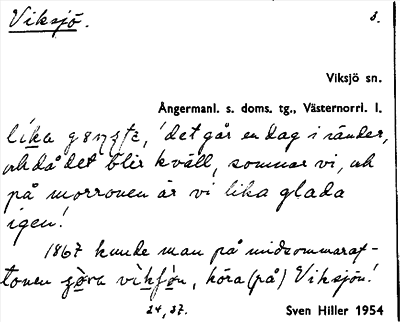 Viksjö. 3.
Viksjö sn.
Ångermanl. s. doms. tg., Västernorrl. l.
lika, 'det går en dag i sänder,
och då det blir kväll, somnar vi, och
på morronen är vi lika glada
igen!
1867 kunde man på midsommaraf-
tonen köra (på) Viksjön!
24, 37. Sven Hiller 1954